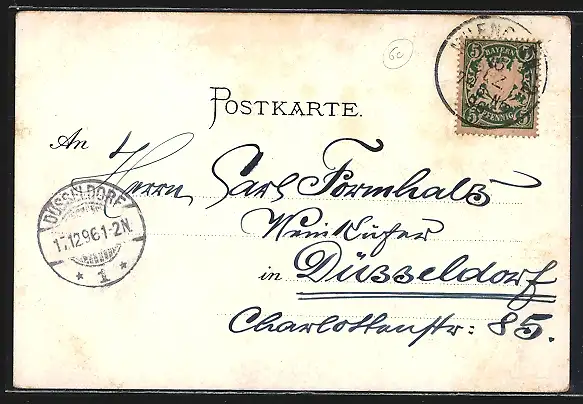 6c
5 BAYERN 5
5 PFENNIG 5
POSTKARTE.
An
Herrn Carl Formhals
Weinküfer
in Düsseldorf
Charlottenstr: 85.
DÜSSELDORF
17.12.96.1-2N.
* 1 *